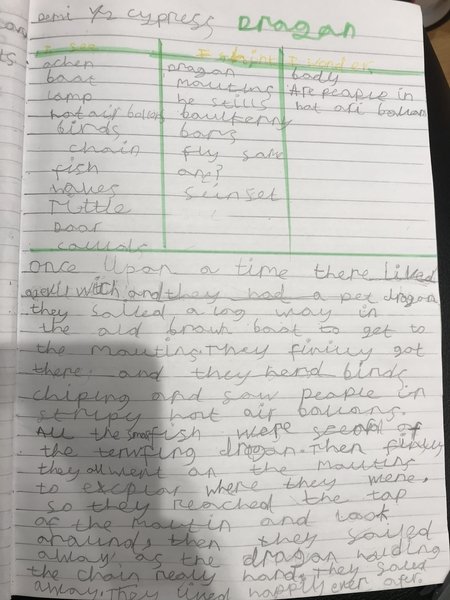 Demi Y2 cypress Dragan
I see I think I wonder
achen Dragan body
baat mauting Are people in
lamp he stills hat ari ballan
hat air ballans baulferry
birds bars
chain fly safe
fish are?
waves sunset
Tuttle
Daar
caulals
once upon a time there lived
a witch and they had a pet dragon
they salled a log way in
the ald brawn baat to get to
the mauting. They finiuy got
there. and they herd birds
chiping and saw peaple in
stripy hat air ballans.
All the small fish were scerd of
the terrifing dragon. Then finlly
they all went an the mauting
to explar where they were.
so they reached the tap
of the mautin and look
araund, then they sailed
away as the dragan halding
the chain realy hard, they saled
away. They lived happily ever after.